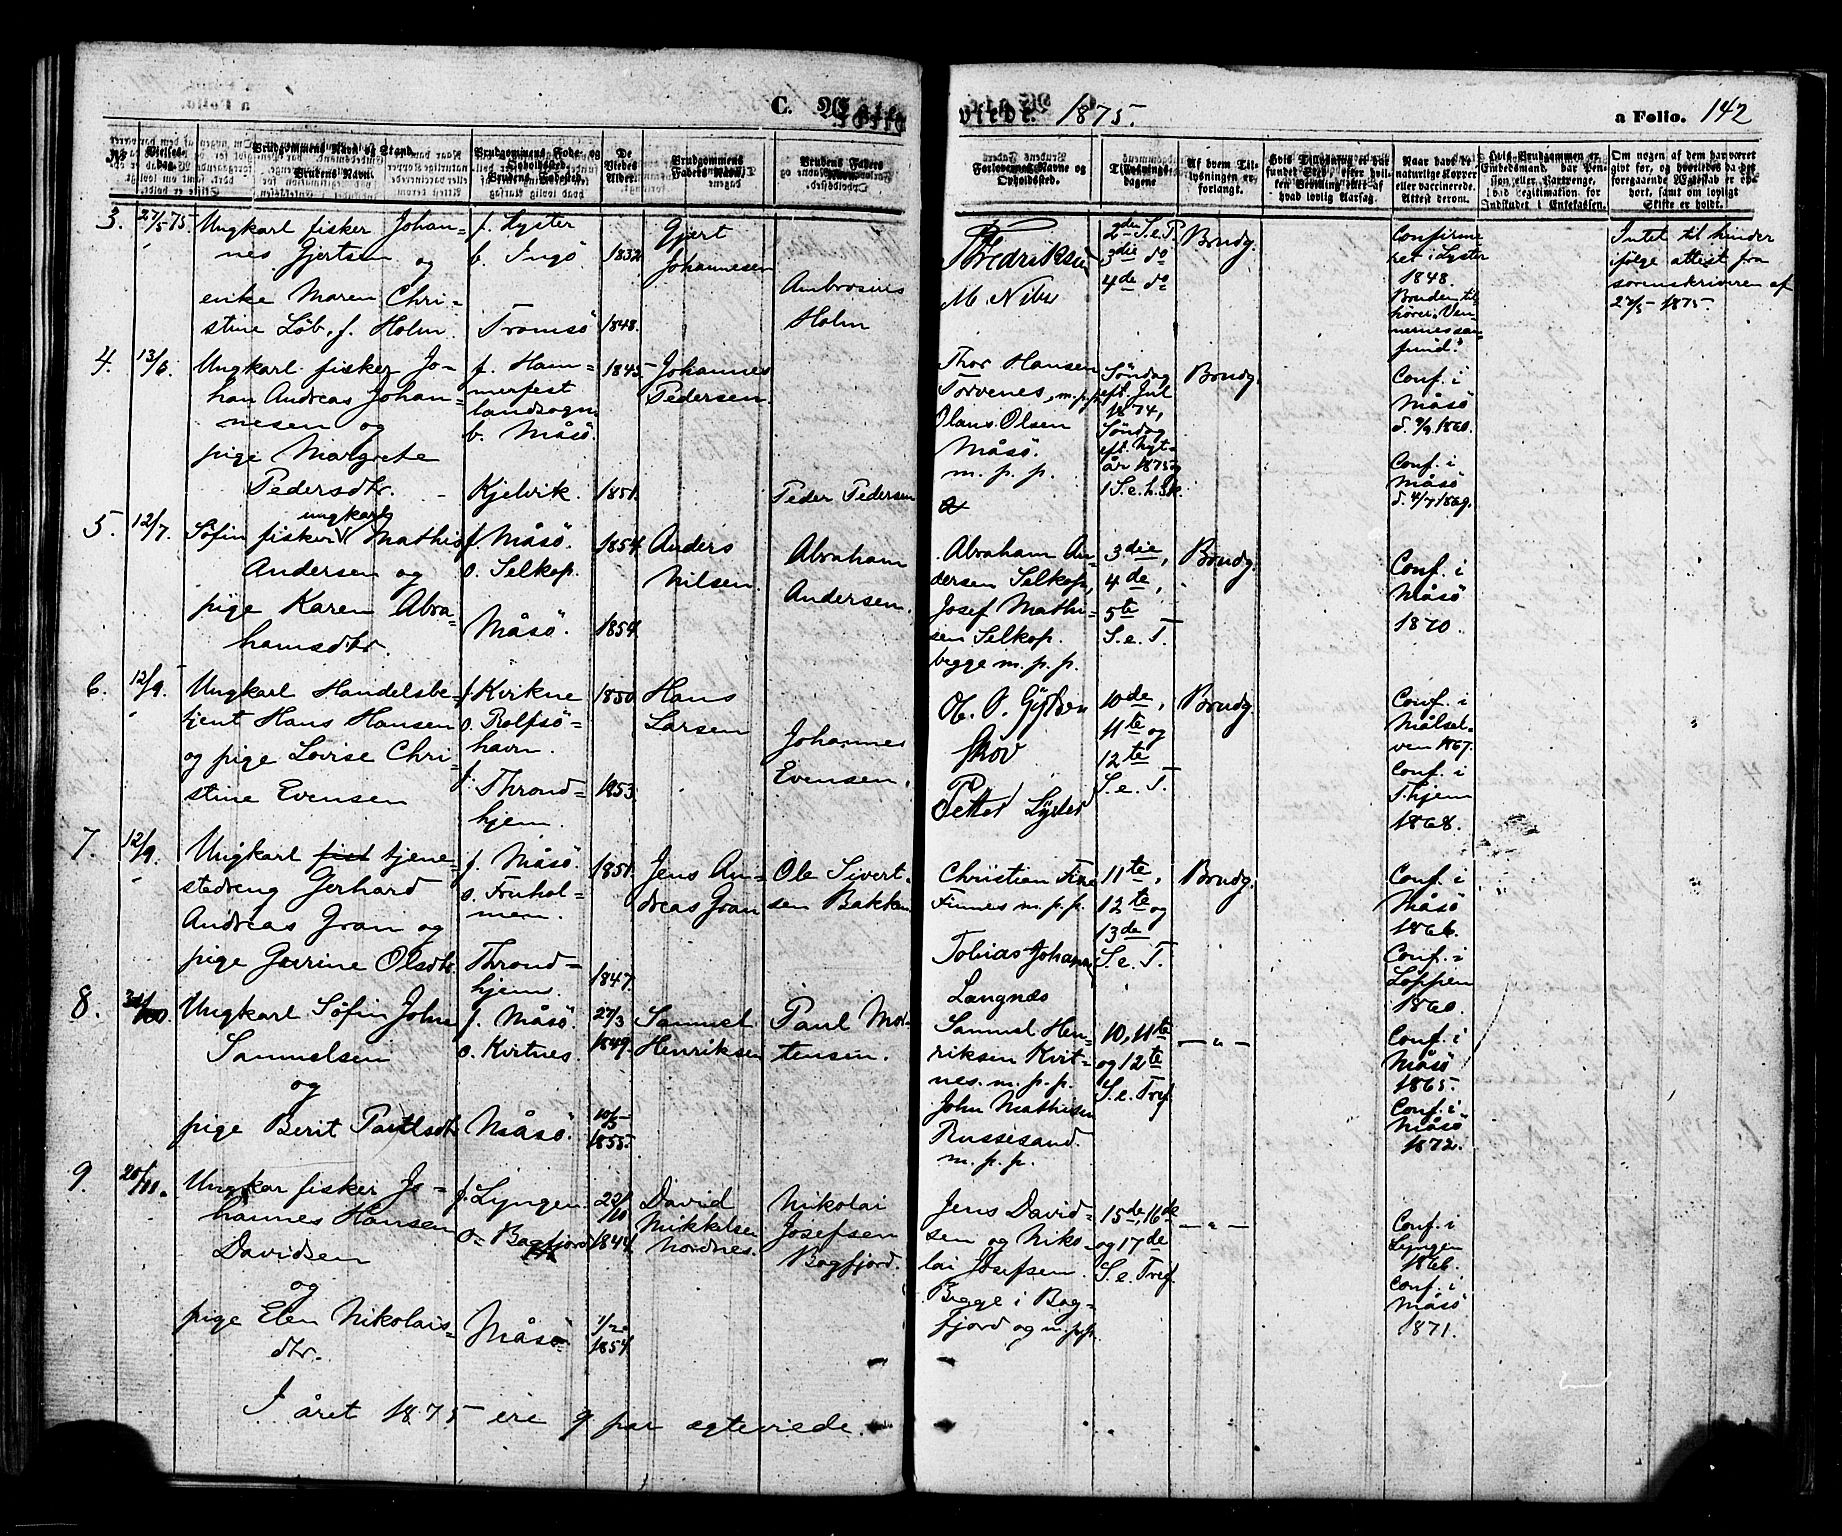 C. Ægte
viede. 1875.
a Folio. 142
No
Vielses-
dag.
Brudgommens Navn og Stand.
Brudens Navn.
Brudgommens Føde- og
Opholdssted.
Brudens Fødested.
De
Viedes
Alder.
Brudgommens
Faders Navn.
Brudens Faders
Forlovernes Navne og
Opholdssted.
Tillysnings-
dagene
Af hvem Til-
lysningen er
forlangt.
Naar havt de
naturlige Kopper
eller vaccinerede.
Attest derom.
Hvis Brudgommen er
Embedsmand, har Pen-
sion eller Vartpenge,
Indskudet i Enkekassen.
Om nogen af dem har været
givt før, og hvorledes da det
foregaaende Ægteskab er op-
hørt, samt om lovligt
Skifte er holdt.
3.
27/5 75.
Ungkarl fisker Johan-
nes Gjertsen og
enke Maren Chri-
stine Løb, f. Holm
f. Lyster
b. Ingö
Tromsö
1832
1848.
Gjert
Johannesen
Ambrosius
Holm
Fredriksen
M. Nibe
2de S. e. P.
3die do
4de do
Brudg.
Confirme
ret i Lyster
1848.
Bruden til
hører Ven-
nernes sam
fund.
Intet til hinder
ifølge attest fra
sorenskriveren af
27/5 1875
4.
13/6.
Ungkarl fisker Jo-
han Andreas Johan-
nesen og
pige Margrete
Pedersdtr.
f. Ham-
merfest
landsogn
b. Måsö.
Kjelvik.
1845
1851.
Johannes
Pedersen.
Peder Pedersen
Thor Hansen
Torvenes, m.p.p.
Olaus Olsen
Måsö.
m. p. p.
Søndag
eft. Jul
1874,
Søndag
eft. Nyt-
år 1875 og
1 S. e. h. 3k.
Brudg.
Conf. i
Måsö
d. 9/9 1860.
Conf. i
Måsö
d. 4/7 1869.
5.
12/7.
ungkarl
Søfin fisker Mathis
Andersen og
pige Karen Abra
hamsdtr.
f. Måsö.
o. Selkop.
Måsö.
1854.
1854.
Anders
Nilsen
Abraham
Andersen.
Abraham An-
dersen Selkop,
Josef Mathi-
sen Selkop.
begge m. p. p.
3die,
4de,
5te
S. e. T.
Brudg.
Conf. i
Måsö
1870.
6.
12/9.
Ungkarl Handelsbe-
tjent Hans Hansen
og pige Lovise Chri-
stine Evensen
f. Kvikne
o. Rolfsö-
havn.
f. Thrond-
hjem.
1850
1853.
Hans
Larsen
Johannes
Evensen.
Skov
Petter Lyder
10de,
11te og
12te
S. e. T.
Brudg.
Conf. i
Målsel-
ven 1867.
Conf. i
T.hjem
1868.
7.
12/9.
Ungkarl fisk tjene-
stedreng Gerhard
Andreas Gran og
pige Gurine Olsdtr.
f. Måsö.
o. Fruhol-
men.
Thrond-
hjem.
1851.
1847.
Jens An-
dreas Gran
Ole Sivert-
sen Bakken
Christian Fine
Finnes m. p. p.
Tobias Johan
Langnæs
11te,
12te og
13de
S. e. T.
Brudg.
Conf. i
Måsö
1866.
Conf. i
Loppen
1860.
8.
Ungkarl Søfin John
Samuelsen
og
pige Berit Paulsdtr.
f. Måsö.
o. Kvitnes.
Måsö.
27/3
1849.
10/5
1855.
Samuel
Henriksen
Paul Mor-
tensen.
Samuel Hen-
riksen Kvit-
nes. m. p. p.
John Mathisen
Russesand.
m. p. p.
10, 11te
og 12te
S. e. Tref.
— " —
Conf. i
Måsö
1865.
Conf. i
Måsö
1872.
9.
20/11.
Ungkar fisker Jo-
hannes Hansen
Davidsen
og
pige Elen Nikolais-
dtr.
f. Lyngen.
o. Bagfjord
Måsö
22/10
1844.
1/2
1854.
David
Mikkelsen
Nordnes.
Nikolai
Josefsen
Bagfjord.
Jens David-
sen og Niko-
lai Josefsen.
Begge i Bag-
fjord og m.p.p.
15de, 16de
og 17de
S. e. Tref.
— " —
Conf. i
Lyngen
1866.
Conf. i
Måsö
1871.
I året 1875 ere 9 par ægteviede.